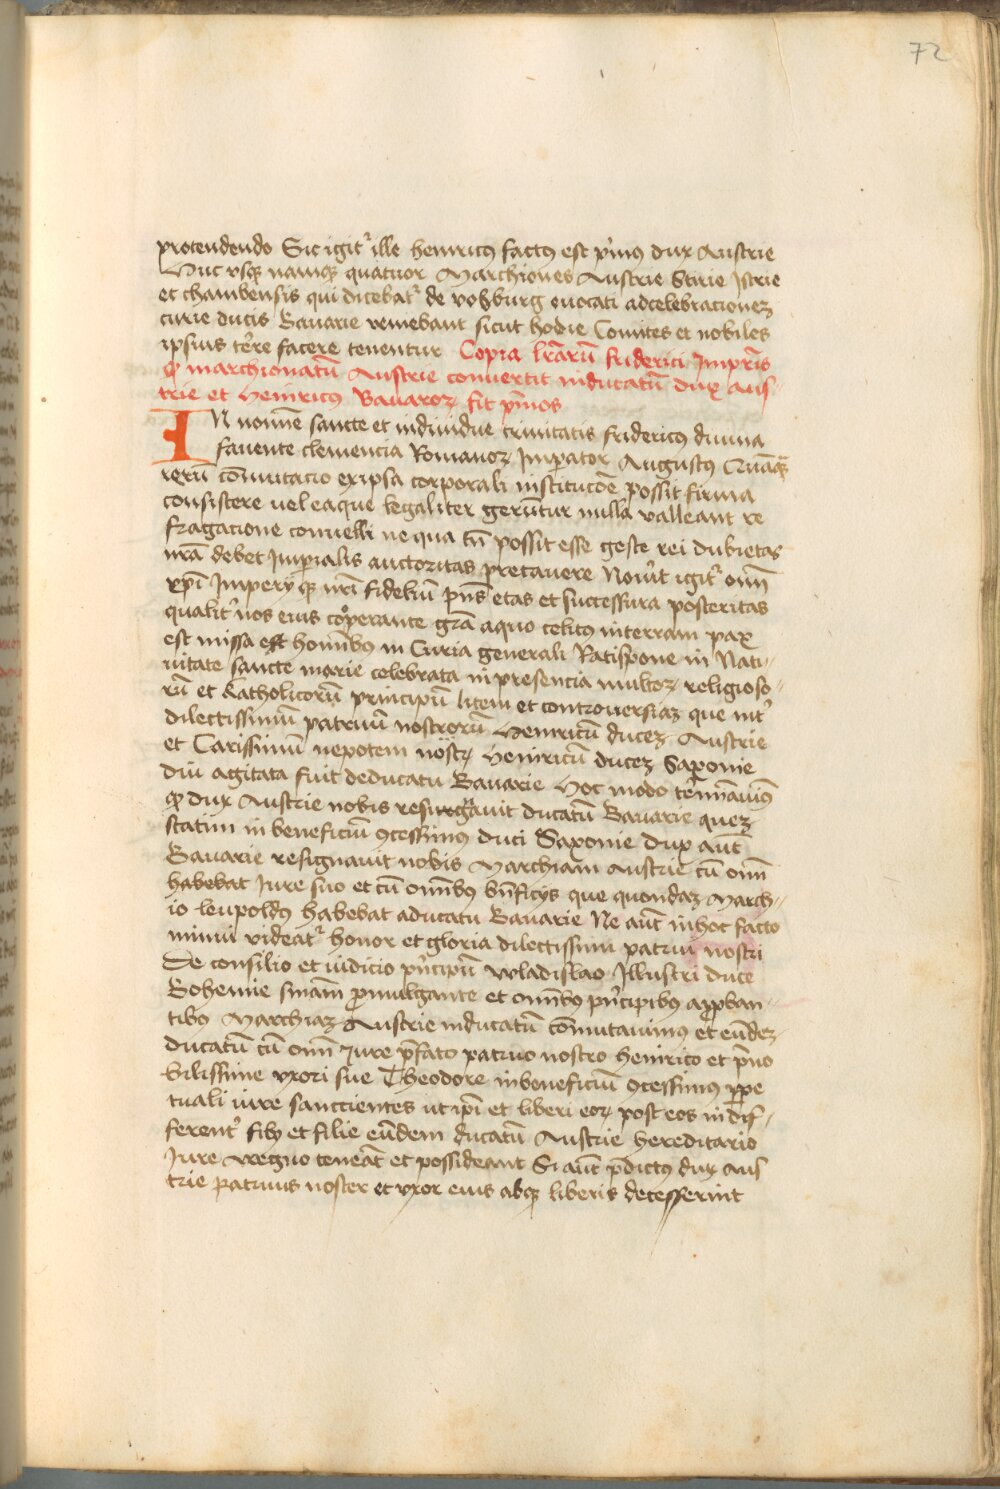 72
protendendo Sic igit᷑ ille heinricꝰ factꝰ est p̓mꝰ dux Austrie
Huc vsqꝫ namqꝫ quatuor Marchiones Austrie Stirie Istrie
et chambensis qui dicebat᷑ de vohburg euocati adcelebracioneꝫ
curie ducis Bauarie veniebant sicut hodie Comites et nobiles
ipsius t̓re facere tenentur Copia lr̄arū friderici Impr̄is
ꝙ marchionatū Austrie conuertit inducatū dux aus-
trie et Heinricus Bauaroꝝ fit p̄mos
IN nomīe sancte et indiuidue trinitatis fridericꝰ diuina
fauente clemencia Romanoꝝ Imperator Augustꝰ Quāqꝫ
rerū cōmutacio ex ipsa corporali institucōe possit firma
consistere vel eaque legaliter gerūtur nulla valleant re
fragacione conuelli ne qua tn̄ possit esse geste rei dubietas
nr̄a debet Imperialis auctoritas pretauere Nou̓it igit᷑ om̄
xp̄i Imperyqꝫ nr̄i fideliū pn̄s etas et successura posteritas
qualit̓ nos eius coꝑerante gr̄a aquo celitꝰ interram pax
est missa est homībꝰ in Curia generali Ratispone in Nati-
uitate sancte marie celebrata in presencia multoꝝ religioso-
rū et Katholicorū principū litem et controuersiaꝫ que int̓
dilectissimū patruū nostrorū Heinricū duceꝫ Austrie
et Carissimū nepotem nostꝝ Heinricū duceꝫ Saxonie
diu agitata fuit deducatu Bauarie Hoc modo t̓mīauimꝰ
ꝙ dux Austrie nobis resignauit ducatū Bauarie queꝫ
statim in beneficiū ꝯcessimus duci Saxonie dux aut̄
Bauarie resignauit nobis Marchiam Austrie cū om̄
habebat Iure suo et cū omībꝰ bn̄ficys que quondaꝫ March-
io leupoldꝰ habebat aducatu Bauarie Ne aut̄ in hoc facto
minui videat᷑ honor et gloria dilectissimi patrui nostri
De consilio et iudicio pn̓cipū wladislao Illustri duce
Bohemie sniām ꝓmulgante et omībꝰ pn̓cipibꝰ apꝓban-
tibꝰ Marchiaꝫ Austrie inducatū cōmutauimꝰ et eūdeꝫ
ducatū cū om̄ Iure p̄fato patruo nostro heinrico et p̄no
bilissime vxori sue Theodore in beneficiū ꝯcessimus ꝑpe
tuali iure sanccientes ut ip̄i et liberi eoꝝ post eos indif-
ferent̓ fily et filie eūdem ducatū Austrie hereditario
Iure aregno teneāt et possideant Si aut̄ p̄dictꝰ dux aus
trie patruus noster et vxor eius absqꝫ liberis decesserint